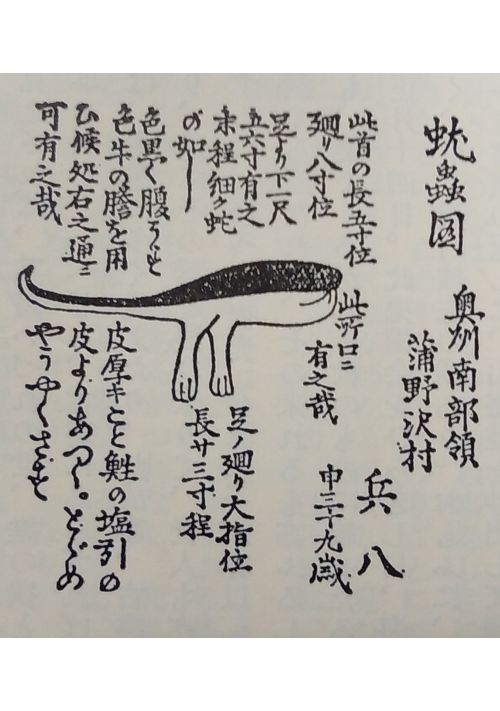 蚖蟲図
奥州南部領
蒲野沢村
兵八
申三十九歳
此首の長五寸位
廻り八寸位
足より下一尺
五六寸有之
末程細ク蛇
の如し
色黒く腹うす
色牛の膽を用
ひ候処右之通ニ
可有之哉
此所口ニ
有之哉
足ノ廻り大指位
長サ三寸程
皮厚キこと鮏の塩引の
皮よりあつく。とゞめ
やうやくさす